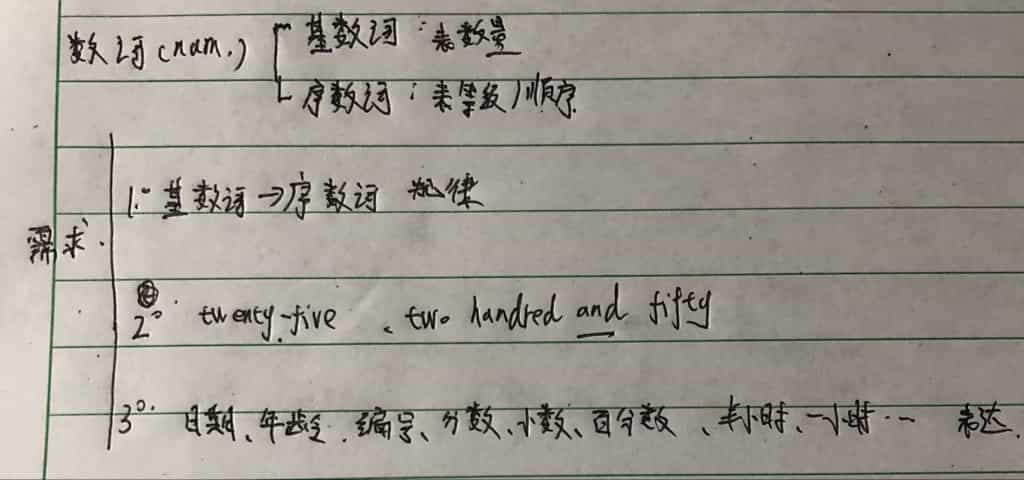 数词(num.) 基数词：表数量
序数词：表等级/顺序
1° 基数词→序数词 规律
需求.
2° twenty-five、two hundred and fifty
3° 日期、年龄、编号、分数、小数、百分数、半小时、一小时… 表达.